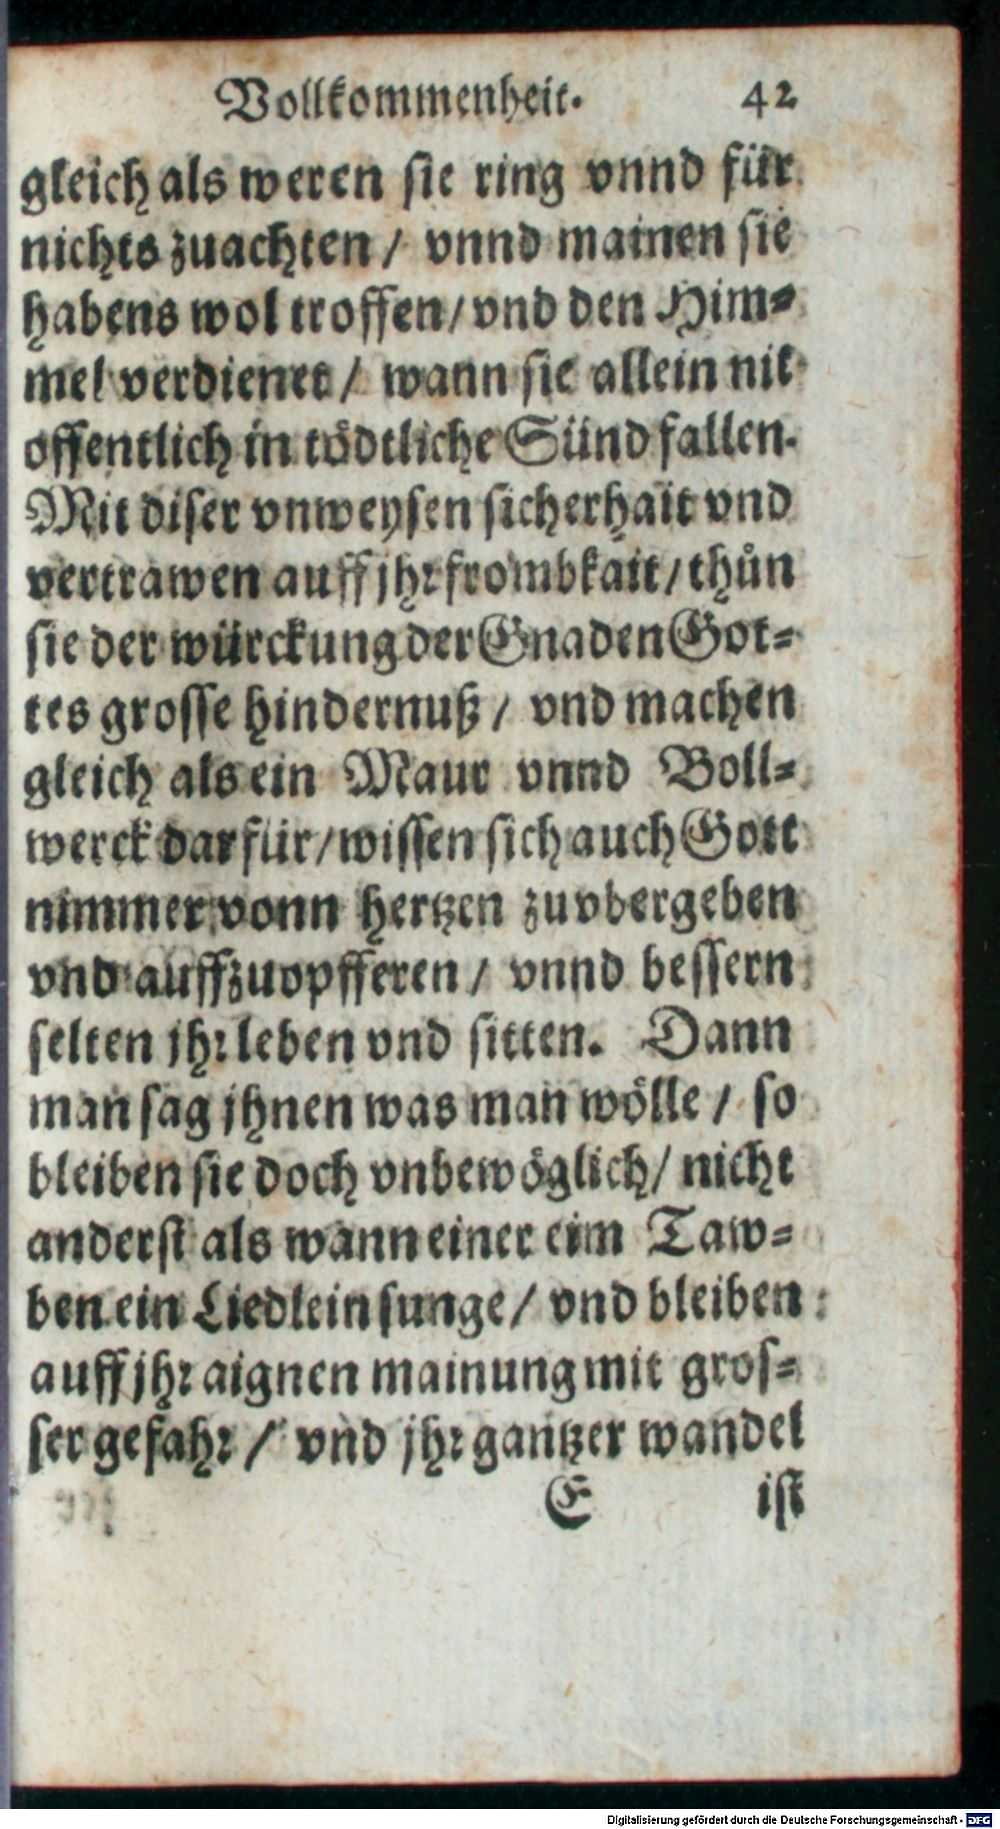 Vollkommenheit. 42
gleich als weren sie ring vnnd für
nichts zuachten / vnnd mainen sie
habens wol troffen / vnd den Him⸗
mel verdienet / wann sie allein nit
offentlich in tödtliche Sünd fallen.
Mit diser vnweysen sicherhait vnd
vertrawen auff jhr frombkait / thůn
sie der würckung der Gnaden Got⸗
tes grosse hindernuß / vnd machen
gleich als ein Maur vnnd Boll⸗
werck darfür / wissen sich auch Gott
nimmer vonn hertzen zuvbergeben
vnd auffzuopfferen / vnnd bessern
selten jhr leben vnd sitten. Dann
man sag jhnen was man wölle / so
bleiben sie doch vnbewöglich / nicht
anderst als wann einer eim Taw⸗
ben ein Liedlein sunge / vnd bleiben
auff jhr aignen mainung mit gros⸗
ser gefahr / vnd jhr gantzer wandel
E ist
Digitalisierung gefördert durch die Deutsche Forschungsgemeinschaft - DFG